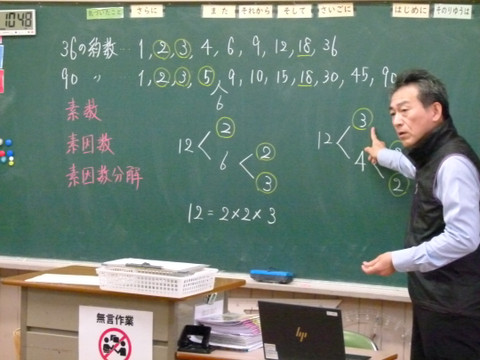 10:48
さらに
また
それから
そして
さいごに
はじめに
そのりゆうは
36の約数… 1, 2, 3, 4, 6, 9, 12, 18, 36
90 〃 1, 2, 3, 5, 9, 10, 15, 18, 30, 45, 90
6
素数
素因数
素因数分解
12 < 2
6 < 2
3
12 < 3
4 < 2
2
12=2×2×3
無言作業
hp